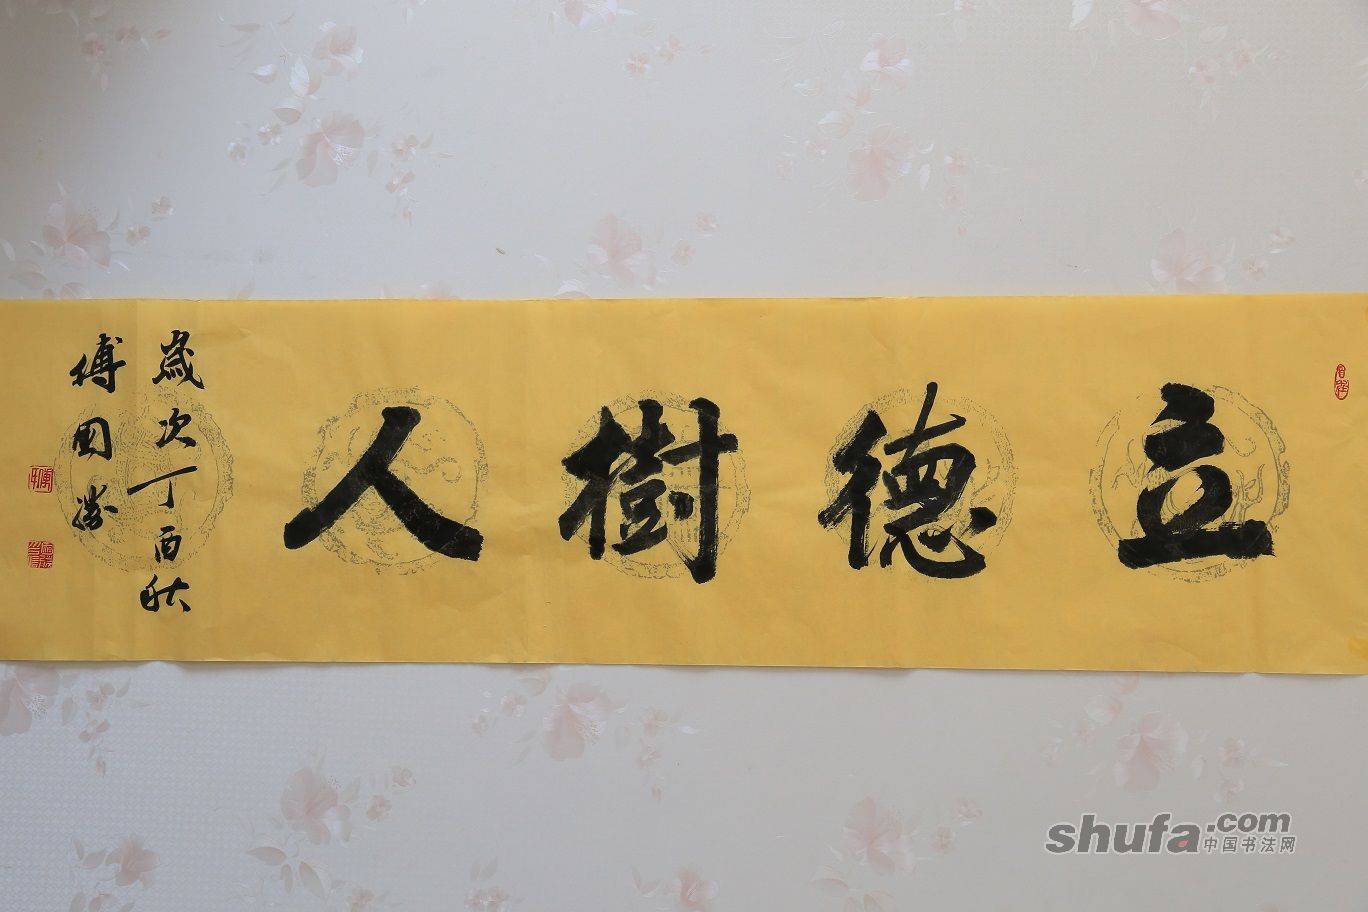 立德樹人
歲次丁酉秋
傅國勝
shufa.com
中国书法网